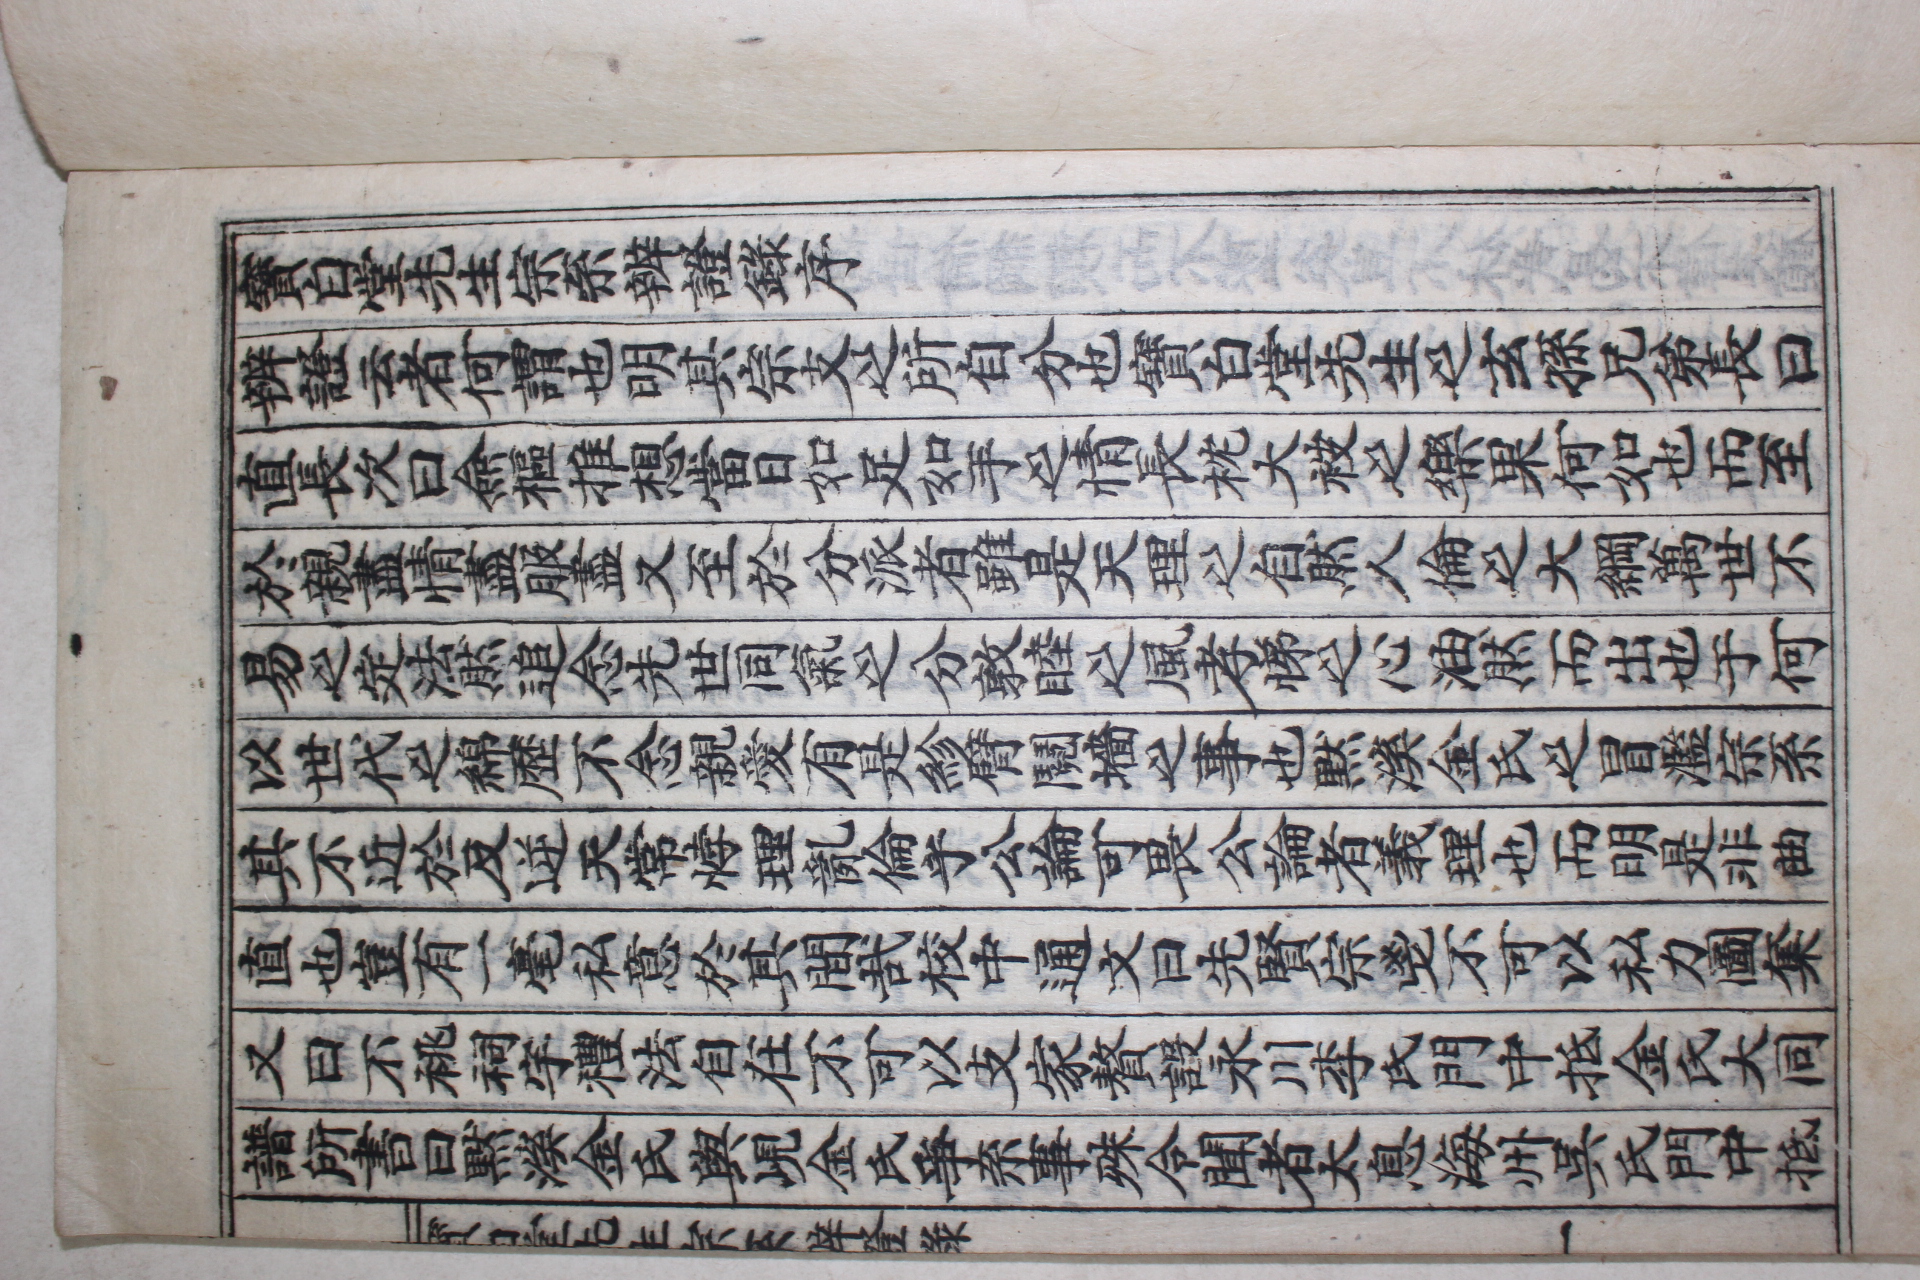 寶白堂先生宗系辨證錄序
辨證云者何謂也明其宗支之所自分也寶白堂先生之玄孫兄弟長曰
直長次曰僉樞推想當日如足如手之情長枕大被之樂果何如也而至
於親盡情盡服盡又至於分派者雖是天理之自然人倫之大綱萬世不
易之定法然追念先世同氣之分敦睦之風孝悌之心油然而出也于何
以世代之綿歷不念親愛有是紾臂鬩墻之事也默溪金氏之冒濫宗系
其不近於反逆天常悖理亂倫乎公論可畏公論者義理也而明是非曲
直也豈有一毫私意於其間哉校中通文曰先賢宗嵬不可以私力圖奪
又曰不祧祠宇禮法自在不可以支家贅設永川李氏門中抵金氏大同
譜所書曰默溪金氏與峴金氏爭系事殊令聞者太息海州吳氏門中抵
寶白堂先生宗系辨證錄
一